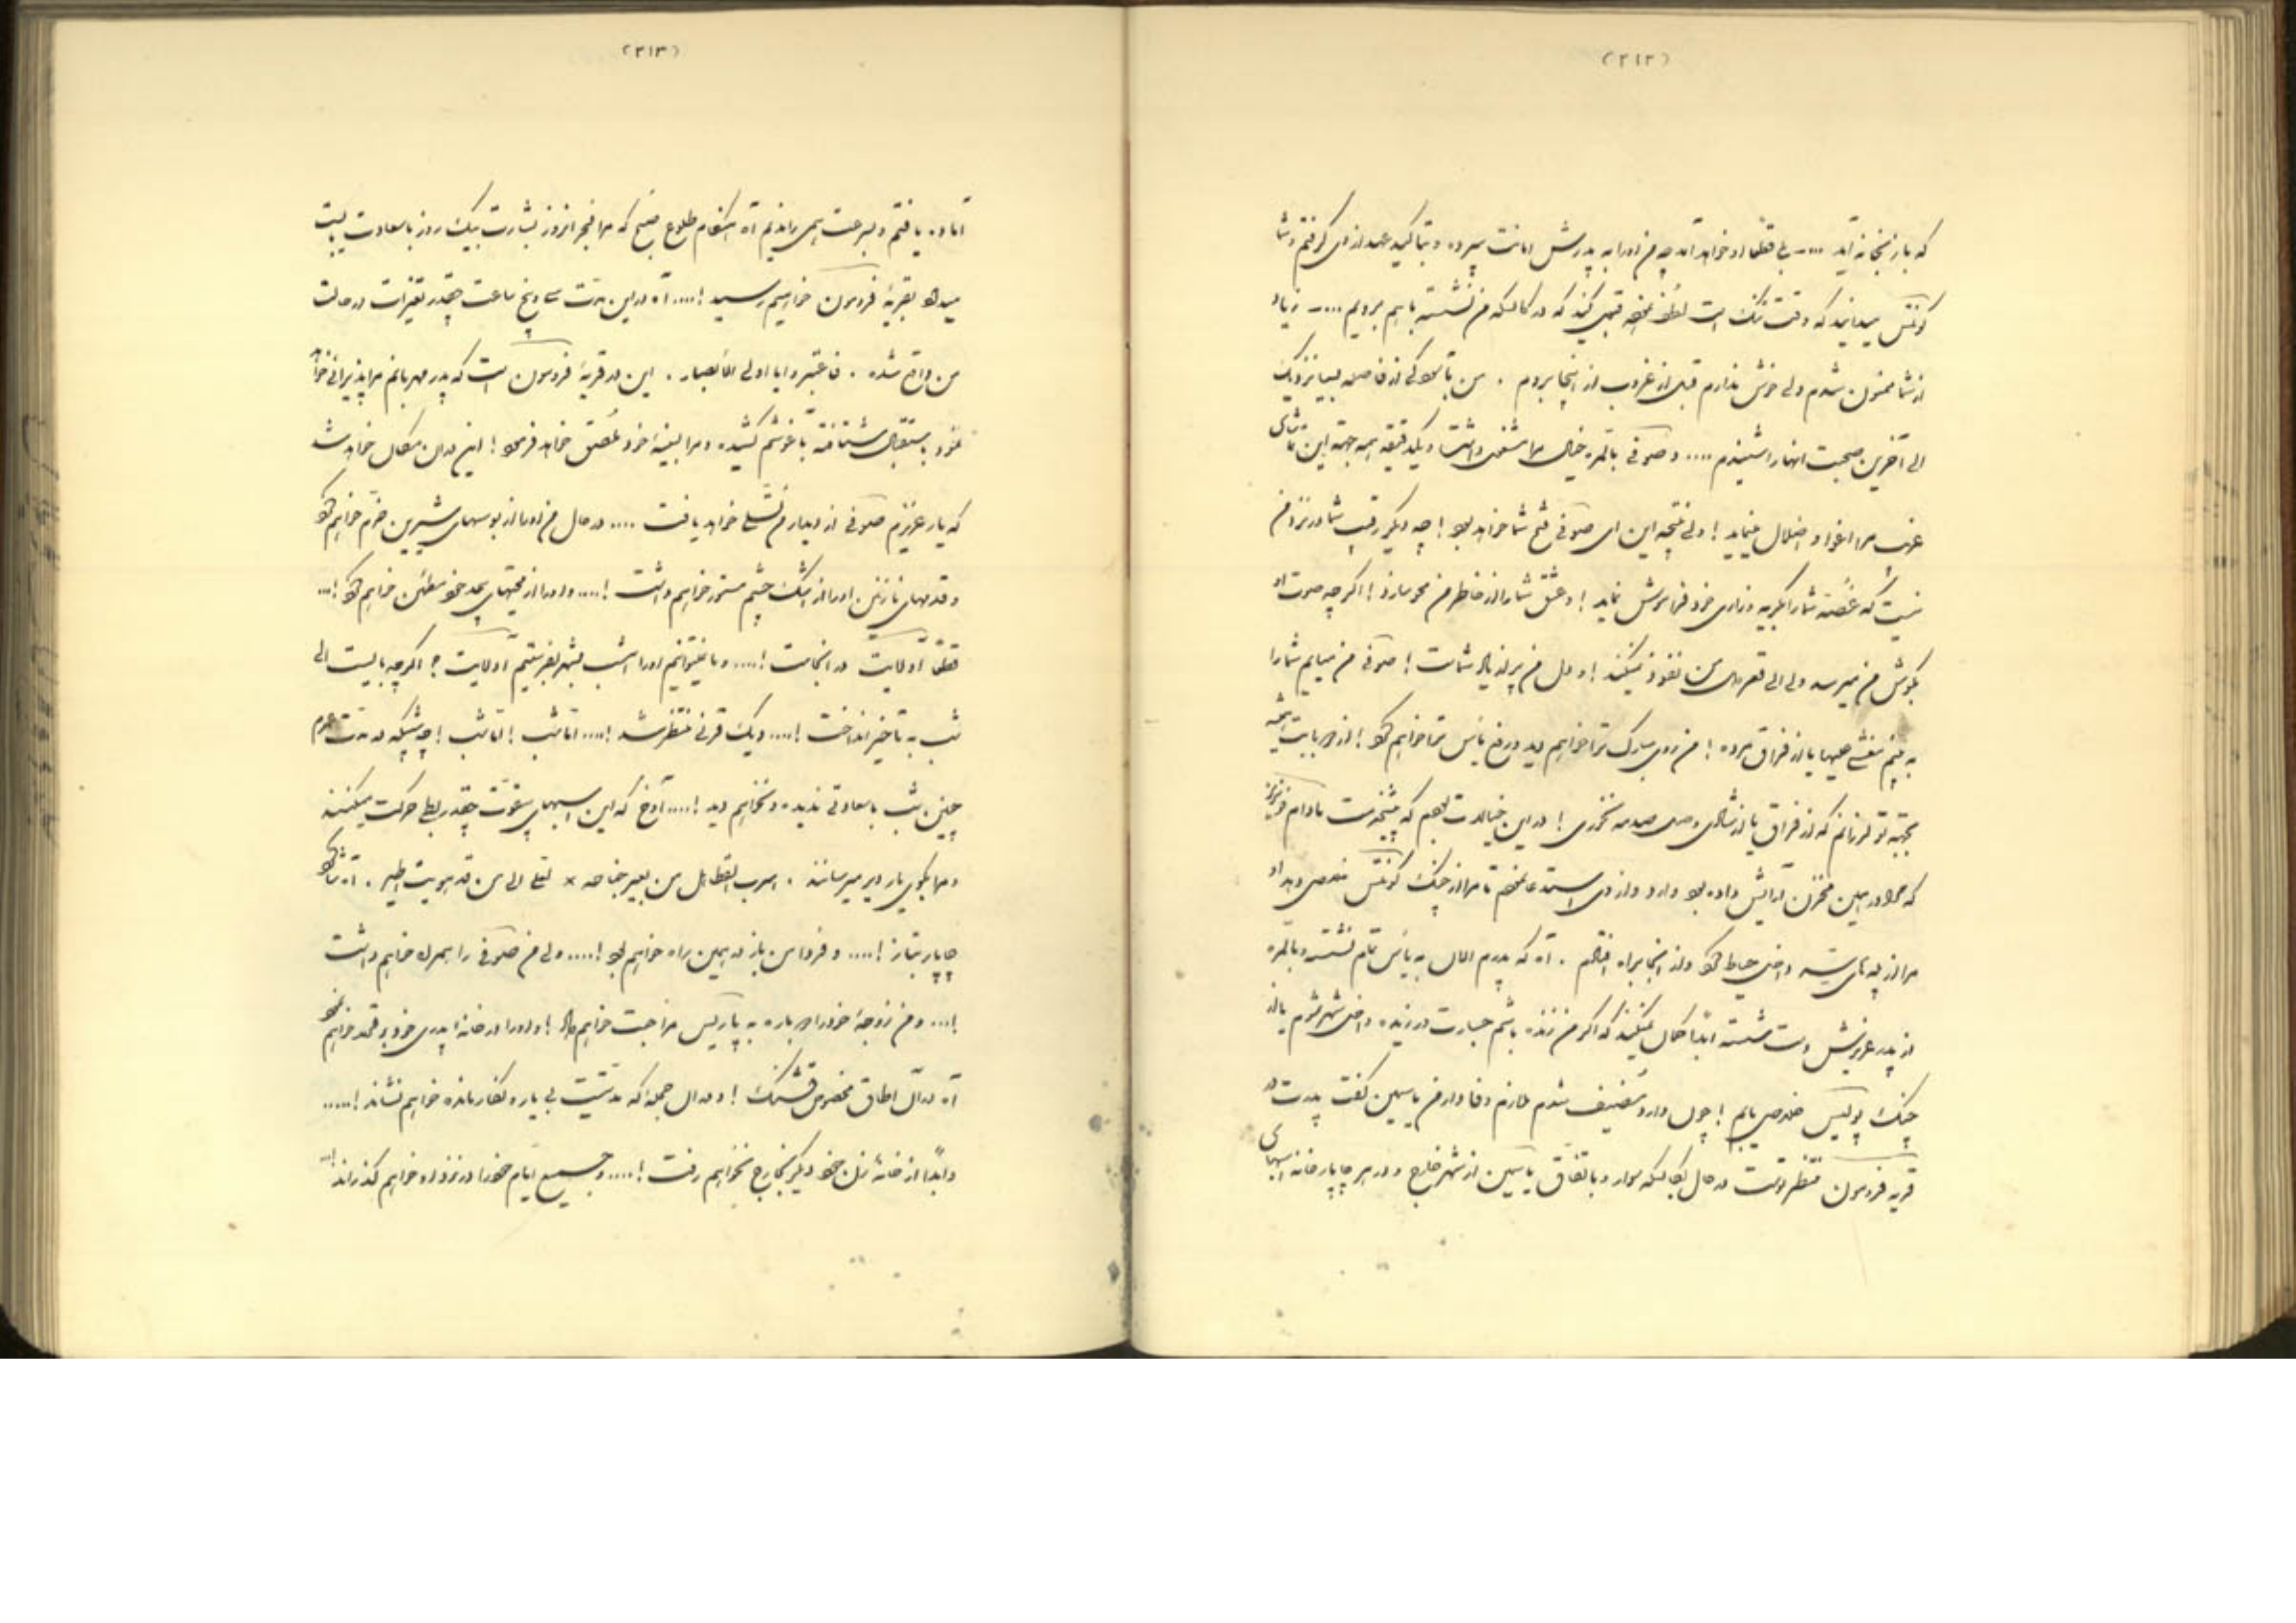 (۲۱۲)
که باز بخانه آید .... بی قطعا او خواهد آمد چه من او را به پدرش امانت سپرده و بتاکید عهد از وی گرفتم و شما
کونتس میدانید که وقت تنک است لطف نموده قبول کنید که در کالسکه من نشسته باهم برویم .... زیاد
از شما ممنون شدم ولی خوش ندارم قبل از غروب از اینجا بروم . من با سوکی از فاصله بسیار نزدیک
الی آخرین صحبت انها را شنیدم .... و صوفی بالمره خیال مرا مشغول داشت و یکدقیقه بهمه جهة این تماشای
غریب مرا اغوا و اضلال مینماید ! ولی نتیجه این ای صوفی فتح شما خواهد بود ! چه دیگر رقیب شما در نزد من
نیست که غصّه شما را بگریه و زاری خود فراموش نماید ! و عشق شما را از خاطر من محو سازد ! اگرچه صوت او
بگوش من میرسد ولی الی قعر دل من نفوذ نمیکند ! و دل من پر از یاد شماست ! صوفی من میایم شما را
به بینم نقشی حیها یا از فراق مرده ! من روی مبارک ترا خواهم دید و رفع یأس ترا خواهم کرد ! از مهربانیت
بجهتی تو کردانم که از فراق یا از شادی وصل صدمه نخوری ! در این خیالات بودم که پیشخدمت مادام
که مرا در همین مخزن آرایش داده بود وارد و از وی استدعا نمودم تا مرا از چنک کونتس خلاصی دهد او
مرا از پله‌های پشت داخل حیاط کرد و از آنجا براه افتادم . آه که پدرم الان به یأس تمام نشسته و بالمره
از پدر عزیزش دست شسته ابداً گمان نمیکند که اگر من زنده باشم جسارت ورزیده داخل شهر شوم یا از
چنک پولیس خلاصی یابم ! چون وارد سفیف شدم ملازم وفادار من یاسمین گفت پدرت در
قریه فرومون منتظر توست در حال بکالسکه سوار و باتفاق یاسمین از شهر خارج و در هر چاپارخانه اسبهای
(۲۱۳)
آماده یافتم و بسرعت همی راندیم آه هنکام طلوع صبح که مرا فجر امروز بشارت بیک روز با سعادت
میداد بقریۀ فرومون خواهیم رسید ! .... آه در این مدت سی و پنج ساعت چقدر تغیرات در حالت
من واقع شده . فاعتبروا یا اولی الابصار . این در قریۀ فرومون است که پدر مهربانم مرا پذیرائی خواهد
نمود باستقبال شتافته بآغوشم کشیده و مرا بسینۀ خود ملصق خواهد فرمود ! این در آن مکان خواهد شد
که یار عزیزم صوفی از دیدارم تسلی خواهد یافت .... در حال من او را از بوسهای شیرین خرم خواهم کرد
و قدمهای نازنین او را از اشک چشم مستور خواهم داشت ! .... و او را از محبتهای بیحد خود مطمئن خواهم کرد ! ...
قطعا آدلایت در آنجاست ! .... و ما نمیتوانیم او را امشب بشهر بفرستیم آدلایت ؟ اگرچه بایست الی
شب به تأخیر انداخت ! .... و یک قرنی منتظر شد ! .... امّا شب ! امّا شب ! چه شبیکه در مدت عمرم
چنین شب باسعادتی ندیده و نخواهم دید ! .... آوخ که این اسبهای بی‌قوت چقدر بطی حرکت میکنند
و مرا بکوی یار دیر میرسانند . اسرب القطا هل من یعیر جناحه × لعلی الی من قد هویت اطیر . آه شاکرد
چاپار بتاز ! .... و فردا من باز در همین راه خواهم بود ! .... ولی من صوفی را همراه خواهم داشت
! .... و من زوجۀ خود را دوباره به پاریس مراجعت خواهم داد ! و او را در خانه ابدی خود برقرار خواهم نمود
آه در آن اطاق مخصوص قشنک ! و در آن حجله که مدتیست بی یار و نگار مانده خواهم نشاند ! .....
و ابداً از خانۀ زن خود دیگر بخارج نخواهم رفت ! .... و جمیع ایام خود را در نزد او خواهم گذراند ! ...